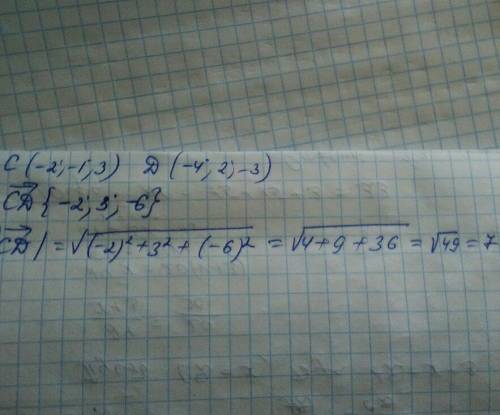 C (-2; -1; 3) D (-4; 2; -3)
CD {-2; 3; -6}
CD| = √(-2)² + 3² + (-6)² = √4 + 9 + 36 = √49 = 7